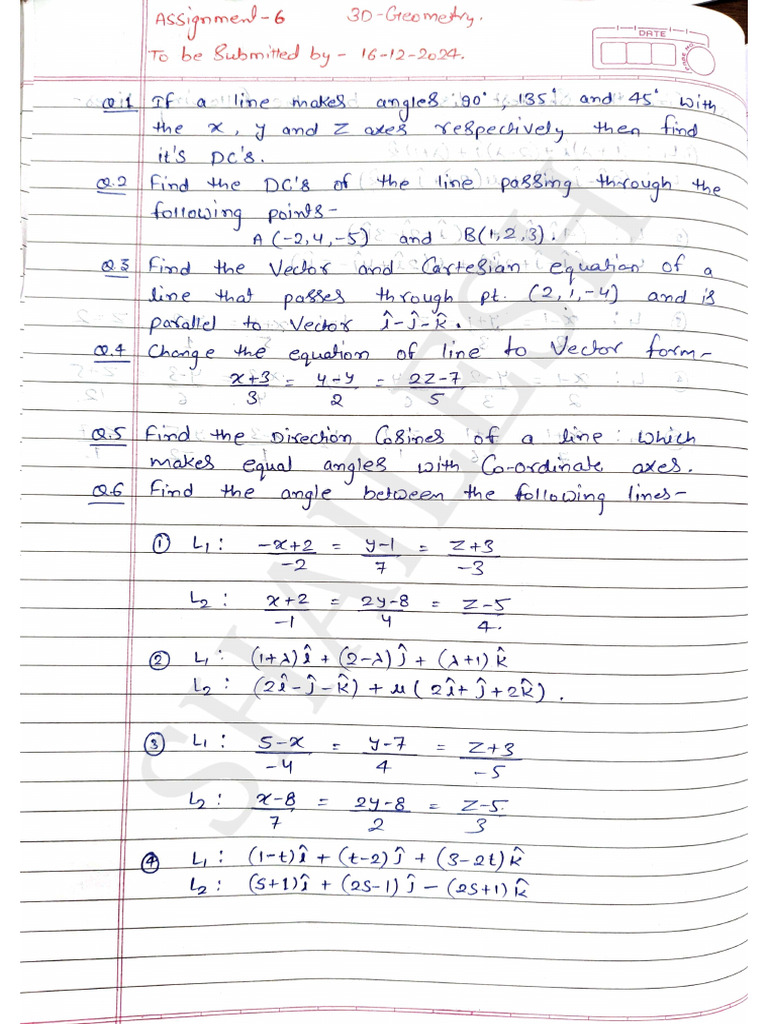 Assignment-6 3D-Geometry.
To be Submitted by - 16-12-2024.
DATE
Q.1 If a line makes angles 90°, 135° and 45° with
the x, y and z axes respectively then find
it's DC's.
Q.2 Find the DC's of the line passing through the
following points-
A (-2,4,-5) and B(1,2,3).
Q.3 Find the Vector and Cartesian equation of a
line that passes through pt. (2,1,-4) and is
parallel to Vector î-ĵ-k̂.
Q.4 Change the equation of line to Vector form-
x+3/3 = 4-y/2 = 2z-7/5
Q.5 Find the Direction Cosines of a line which
makes equal angles with Co-ordinate axes.
Q.6 Find the angle between the following lines-
① L₁ : -x+2/-2 = y-1/7 = z+3/-3
L₂ : x+2/-1 = 2y-8/4 = z-5/4.
② L₁ : (1+λ)î + (2-λ)ĵ + (λ+1)k̂
L₂ : (2î-ĵ-k̂) + μ(2î+ĵ+2k̂).
③ L₁ : 5-x/-4 = y-7/4 = z+3/-5
L₂ : x-8/7 = 2y-8/2 = z-5/3
④ L₁ : (1-t)î + (t-2)ĵ + (3-2t)k̂
L₂ : (s+1)î + (2s-1)ĵ - (2s+1)k̂
SHAILESH